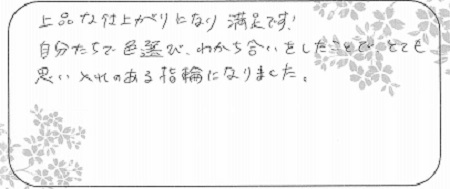 上品な仕上がりになり満足です!
自分たちで色選び、わかち合いをしたことで、とても
思い入れのある指輪になりました。